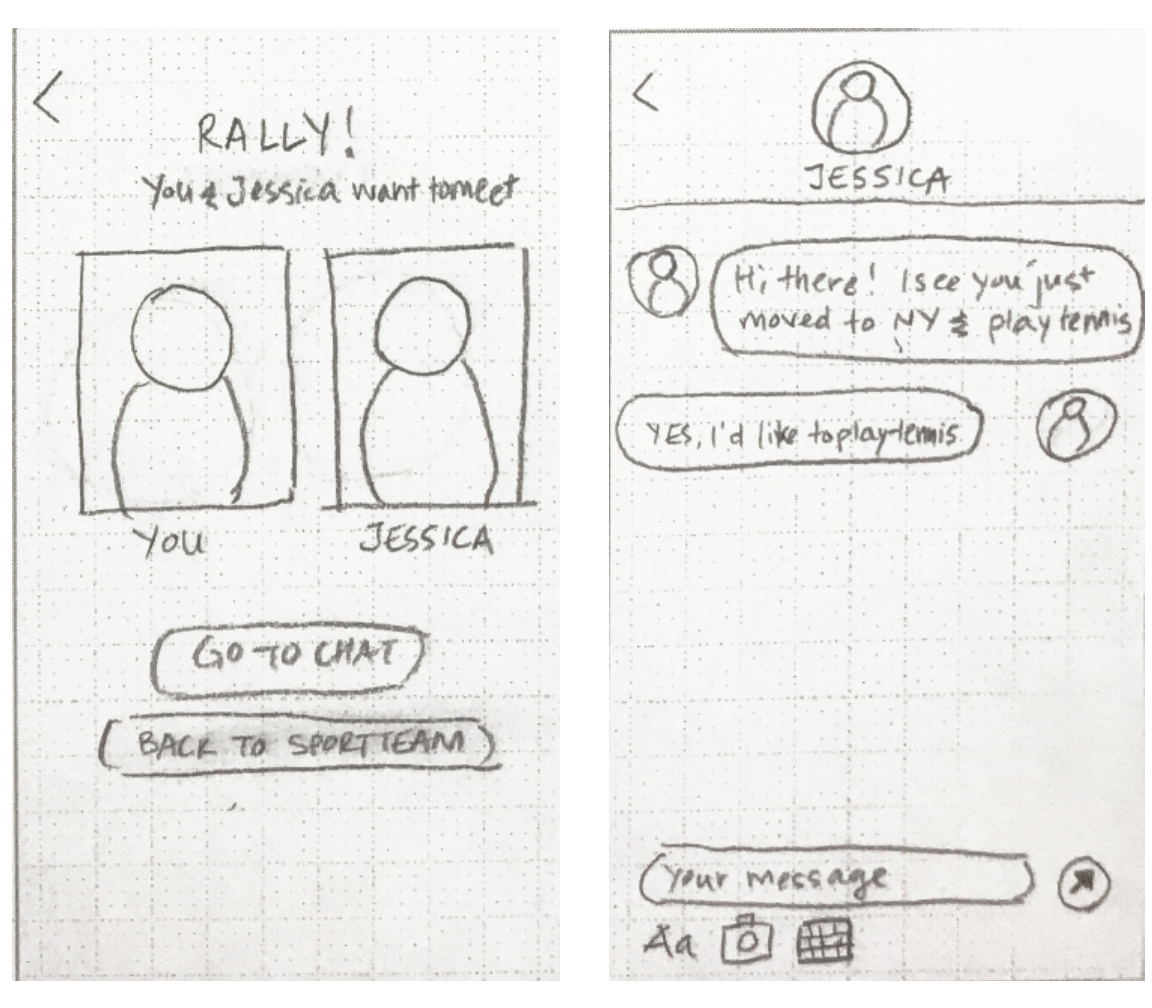 RALLY!
You & Jessica want to meet
YOU
JESSICA
GO TO CHAT
BACK TO SPORTTEAM
JESSICA
Hi, there! I see you just
moved to NY & play tennis
YES, I'd like to play tennis
Your message
Aa